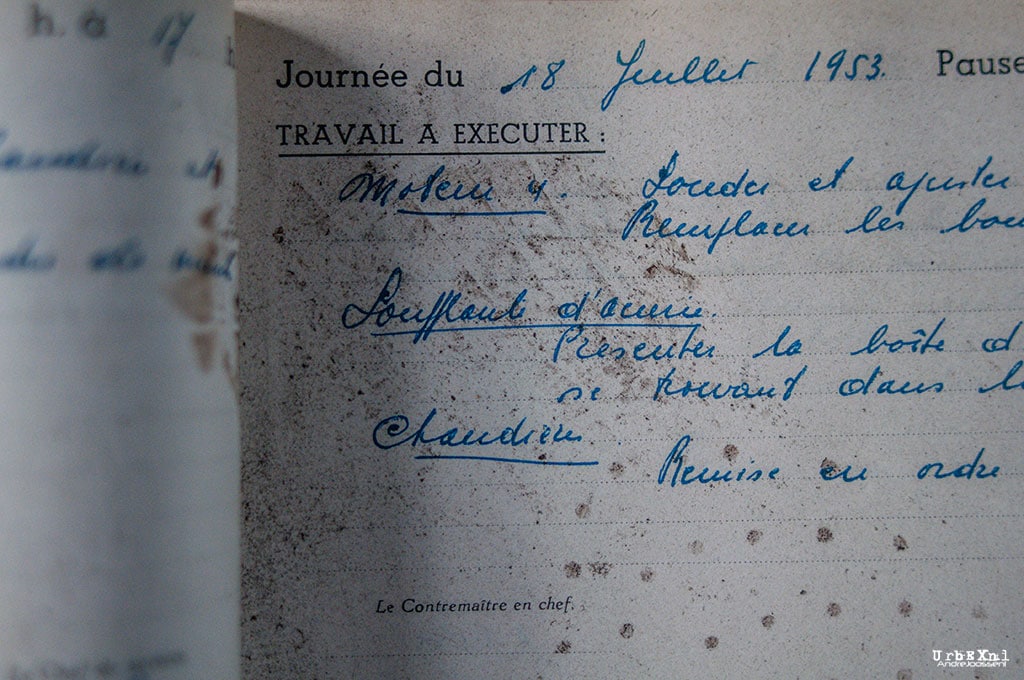 h. à 17
Journée du 18 Juillet 1953. Pause
TRAVAIL A EXECUTER :
Moteur 4. Souder et ajuster
Remplacer les
Soufflante d'aciérie.
Présenter la boîte d
se trouvant dans l
Chaudières
Remise en ordre
Le Contremaître en chef.
UrbEXnl
AndreJoosse.nl